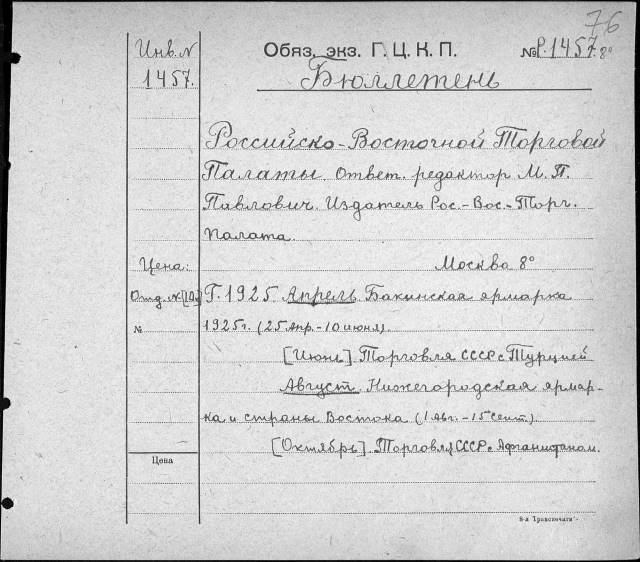 76
Инв. N Обяз. экз. Г. Ц. К. П. №Р. 1457 8°
1457. Бюллетень
Российско-Восточной Торговой
Палаты. Ответ. редактор М. П.
Павлович. Издатель Рос.-Вос.-Торг.
палата.
Цена: Москва 8°
Отд. N Г. 1925 Апрель. Бакинская ярмарка
№ 1925 г. (25 Апр.-10 июня).
[Июнь]. Торговля СССР с Турцией
Август. Нижегородская ярмар-
ка и страны Востока (1 Авг.-15 сент.)
[Октябрь]. Торговля СССР с Афганистаном.
Цена
8-я "Транспечати"